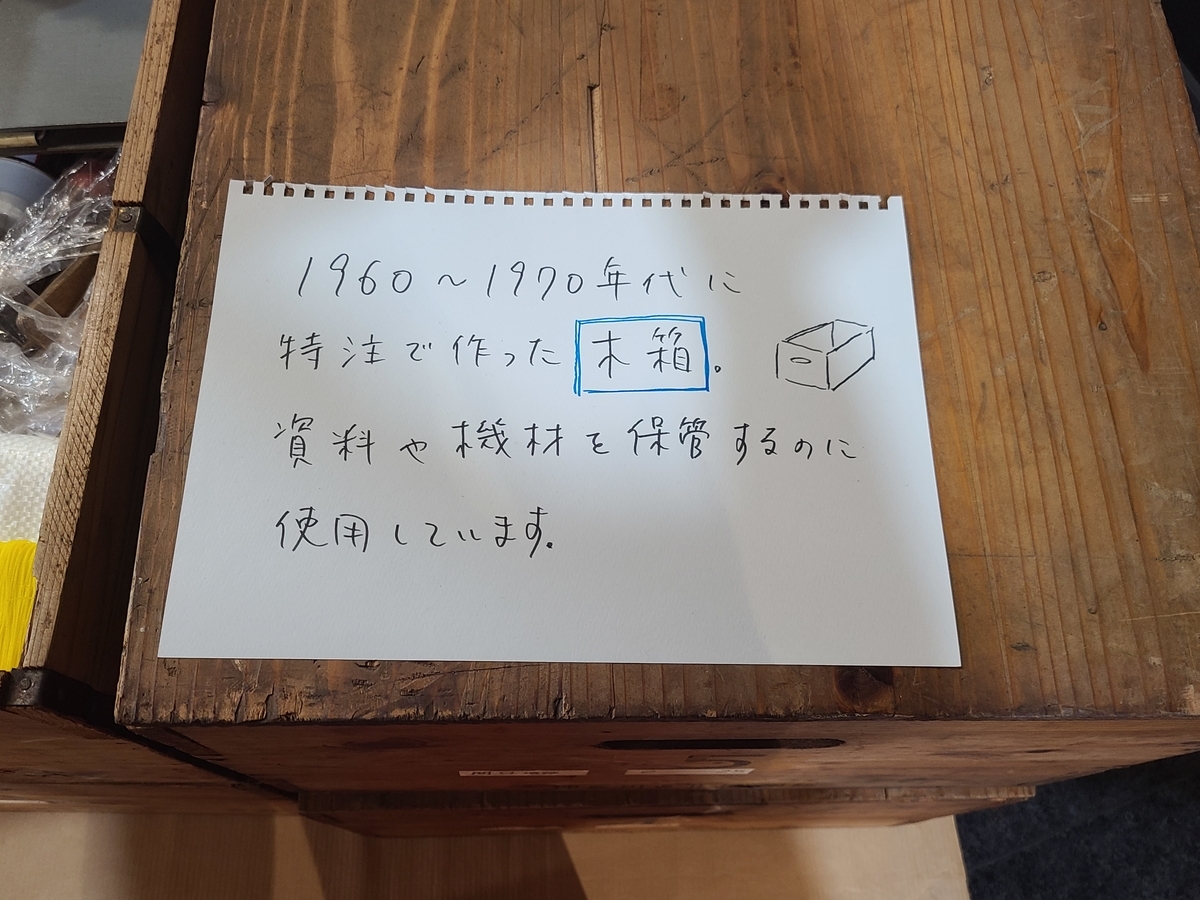 1960～1970年代に
特注で作った木箱。
資料や機材を保管するのに
使用しています。